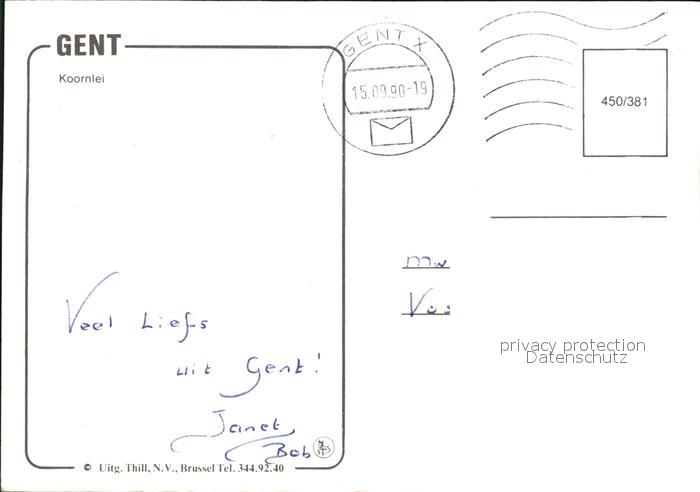 GENT
Koornlei
GENT X
15.09.90-19
450/381
Mw
Veel Liefs
uit Gent!
Janet
Bob
privacy protection
Datenschutz
© Uitg. Thill, N.V., Brussel Tel. 344.92.40